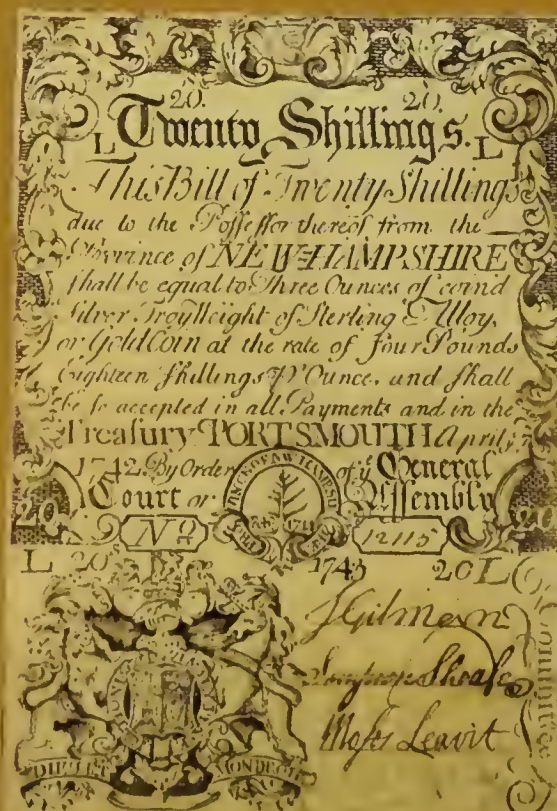 20. 20.
L Twenty Shillings. L
This Bill of Twenty Shillings
due to the Poſſeſſor thereof from the
Province of NEW-HAMPSHIRE
ſhall be equal to Three Ounces of coin'd
Silver Troy Weight of Sterling Alloy,
or Gold Coin at the rate of four Pounds
Eighteen ſhillings ⅌ Ounce, and ſhall
be ſo accepted in all Payments and in the
Treaſury PORTSMOUTH April
1742. By Order of yᵉ General
Court or Aſſembly
20 20
No 12115
L 20 1743 20 L
J Gilmean
Sheafe
Moſes Leavit
DIEU ET MON DROIT